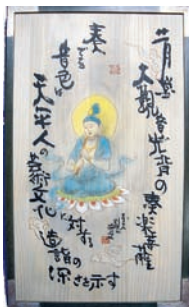 二月堂
大観音光背の奏楽菩薩
奏でる
音色は
天平人の
芸術文化に対する
造詣の
深さを示す